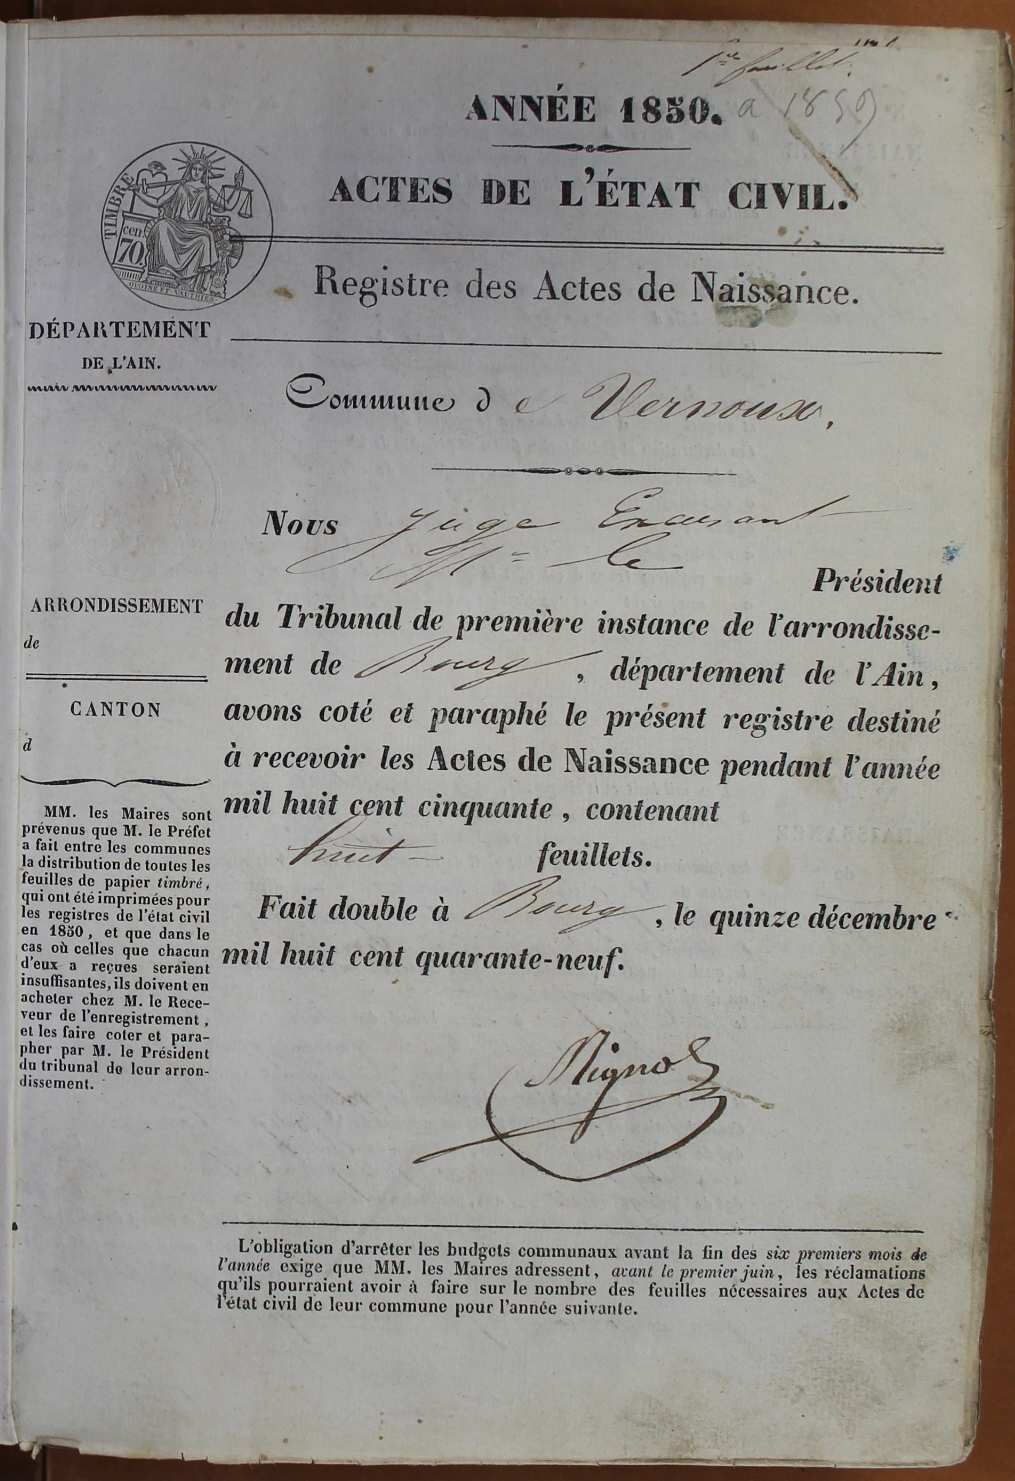 1er feuillet.
ANNÉE 1850. a 1859
ACTES DE L'ÉTAT CIVIL.
TIMBRE
70 cen
Registre des Actes de Naissance.
DÉPARTEMENT
DE L'AIN.
Commune de Vernoux.
Nous Juge
Mr le
Président
du Tribunal de première instance de l'arrondisse-
ment de Bourg, département de l'Ain,
avons coté et paraphé le présent registre destiné
à recevoir les Actes de Naissance pendant l'année
mil huit cent cinquante, contenant
huit feuillets.
Fait double à Bourg, le quinze décembre
mil huit cent quarante-neuf.
ARRONDISSEMENT
de
CANTON
d
MM. les Maires sont
prévenus que M. le Préfet
a fait entre les communes
la distribution de toutes les
feuilles de papier timbré,
qui ont été imprimées pour
les registres de l'état civil
en 1850, et que dans le
cas où celles que chacun
d'eux a reçues seraient
insuffisantes, ils doivent en
acheter chez M. le Rece-
veur de l'enregistrement,
et les faire coter et para-
pher par M. le Président
du tribunal de leur arron-
dissement.
L'obligation d'arrêter les budgets communaux avant la fin des six premiers mois de
l'année exige que MM. les Maires adressent, avant le premier juin, les réclamations
qu'ils pourraient avoir à faire sur le nombre des feuilles nécessaires aux Actes de
l'état civil de leur commune pour l'année suivante.